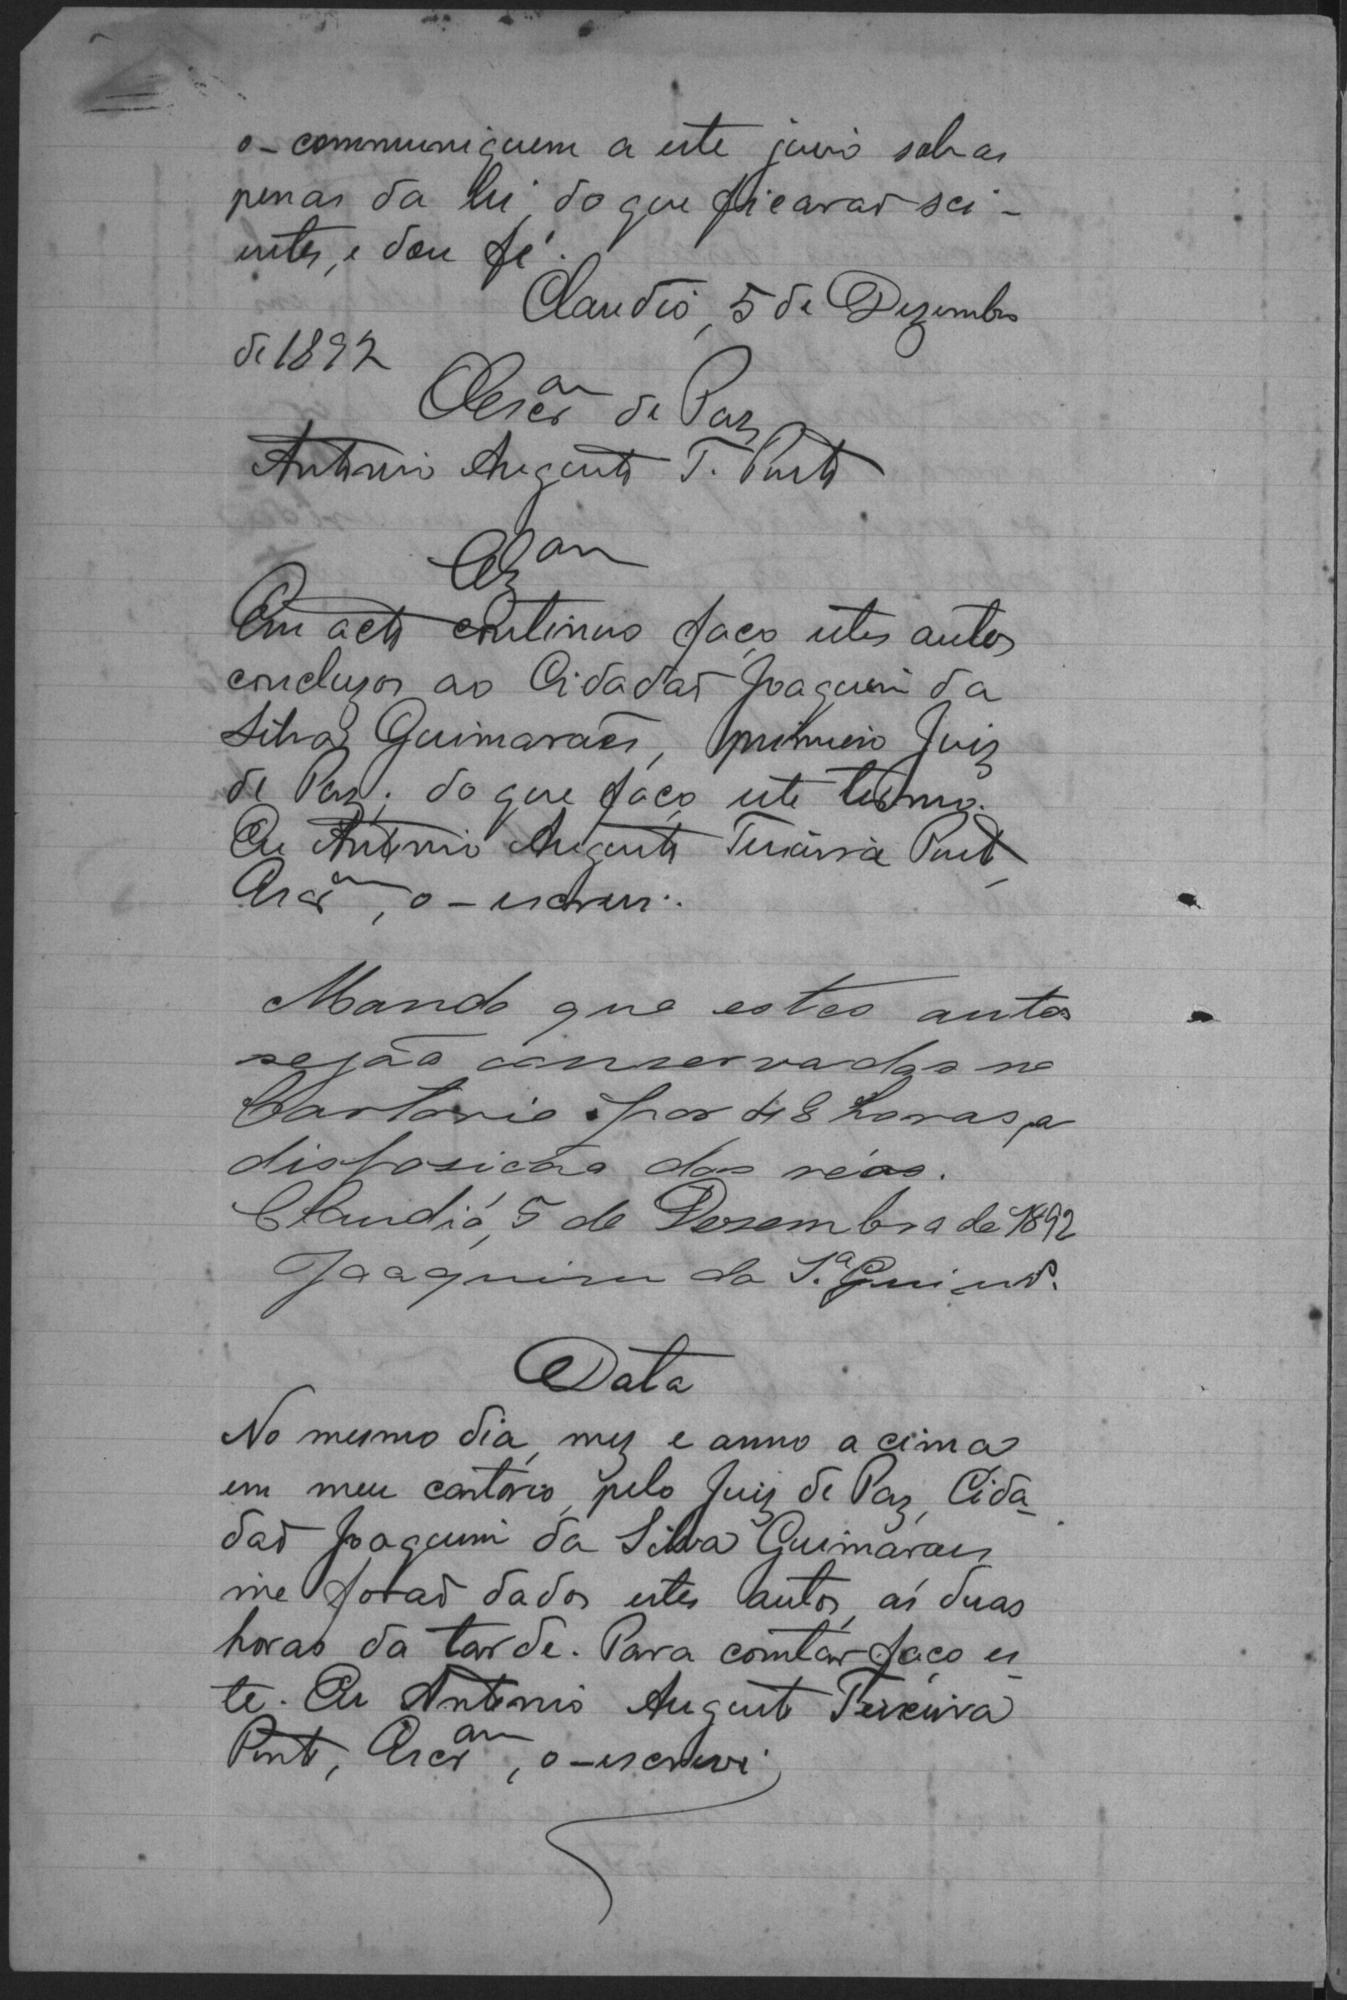 o-communiquem a este juiso sob as
penas da lei, do que ficarað sci-
entes, e dou fé.
Claudio, 5 de Dezembro
de 1892
O Escr.am de Paz
Antonio Augusto T. Porto
Clz.am
Em acto continuo faço estes autos
concluzos ao Cidadað Joaquim da
Silva Guimarães, primeiro Juiz
de Paz; do que faço este termo.
Eu Antonio Augusto Teixeira Porto,
Escr.am, o-escrevi.
Mando que estes autos
sejão conservados no
Cartorio por 48 horas, a
disposicão dos réos.
Claudió, 5 de Desembro de 1892
Joaquim da S.a Guim.s
Data
No mesmo dia, mez e anno acima
em meu cartorio, pelo Juiz de Paz, Cida-
dað Joaquim da Silva Guimarães
me forað dados estes autos, as duas
horas da tarde. Para constar faço es-
te. Eu Antonio Augusto Teixeira
Porto, Escr.am, o-escrevi